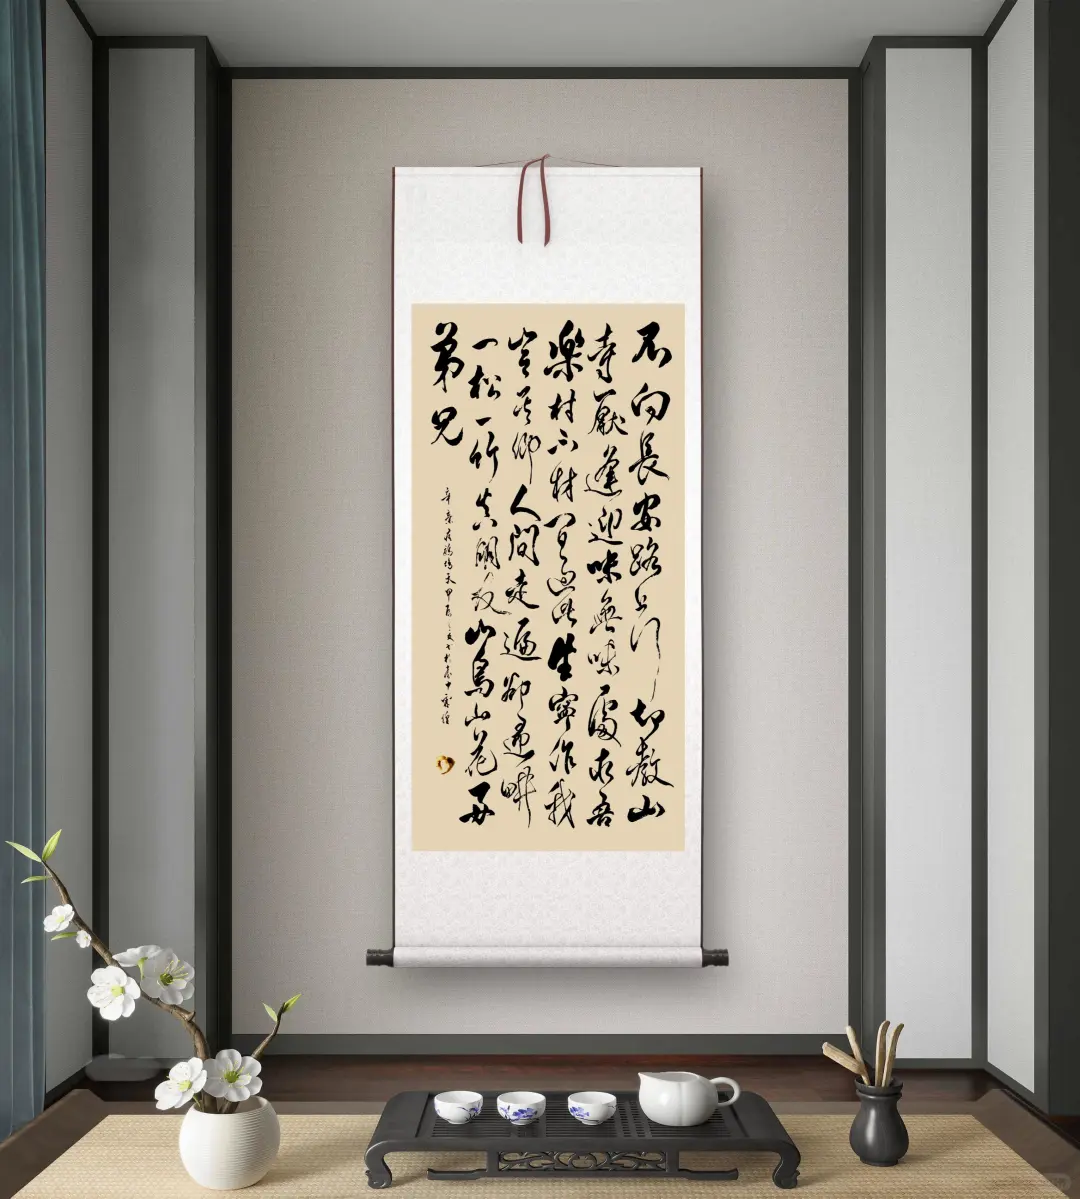 不向長安路上行却教山
寺厭逢迎味無味處求吾
樂材不材間過此生寧作我
豈其卿人間走遍卻歸耕
一松一竹真朋友山鳥山花好
弟兄
辛棄疾鷓鴣天甲辰之夏書於